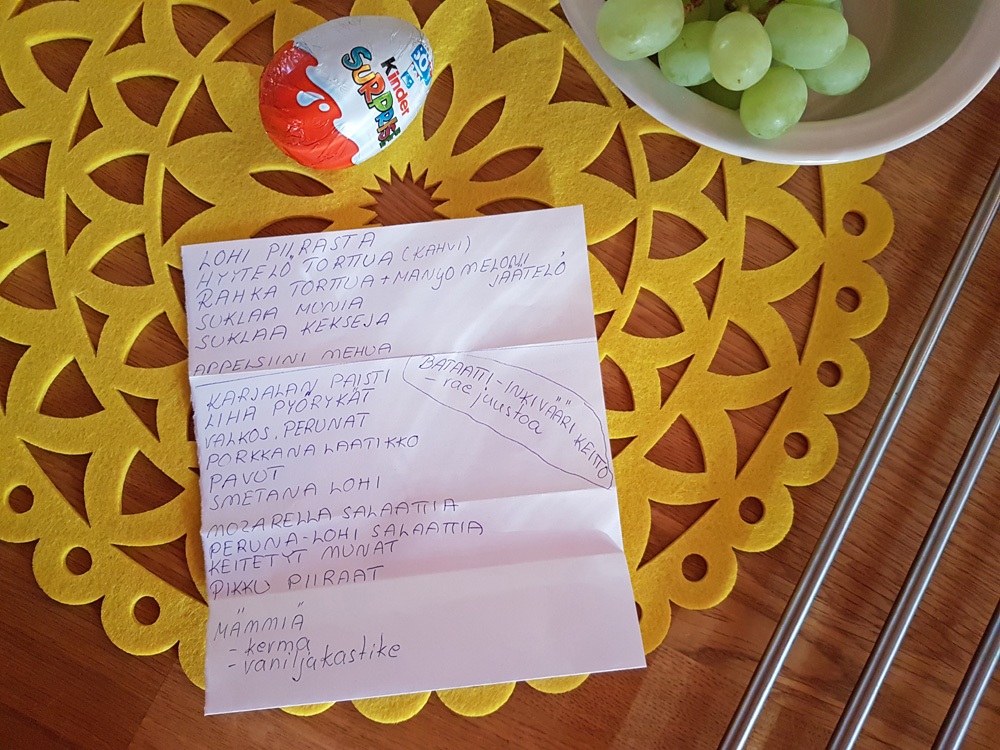 Kinder
SURPRISE
LOHI PIIRASTA
HYYTELÖ TORTTUA (KAHVI)
RAHKA TORTTUA + MANGO MELONI
JÄÄTELÖ
SUKLAA MUNIA
SUKLAA KEKSEJÄ
APPELSIINI MEHUA
KARJALAN PAISTI
LIHA PYÖRYKÄT
VALKOS. PERUNAT
PORKKANA LAATIKKO
PAVUT
SMETANA LOHI
BATAATTI-INKIVÄÄRI KEITTO
- raejuustoa
MOZARELLA SALAATTIA
PERUNA-LOHI SALAATTIA
KEITETYT MUNAT
PIKKU PIIRAAT
MÄMMIÄ
- kerma
- vaniljakastike